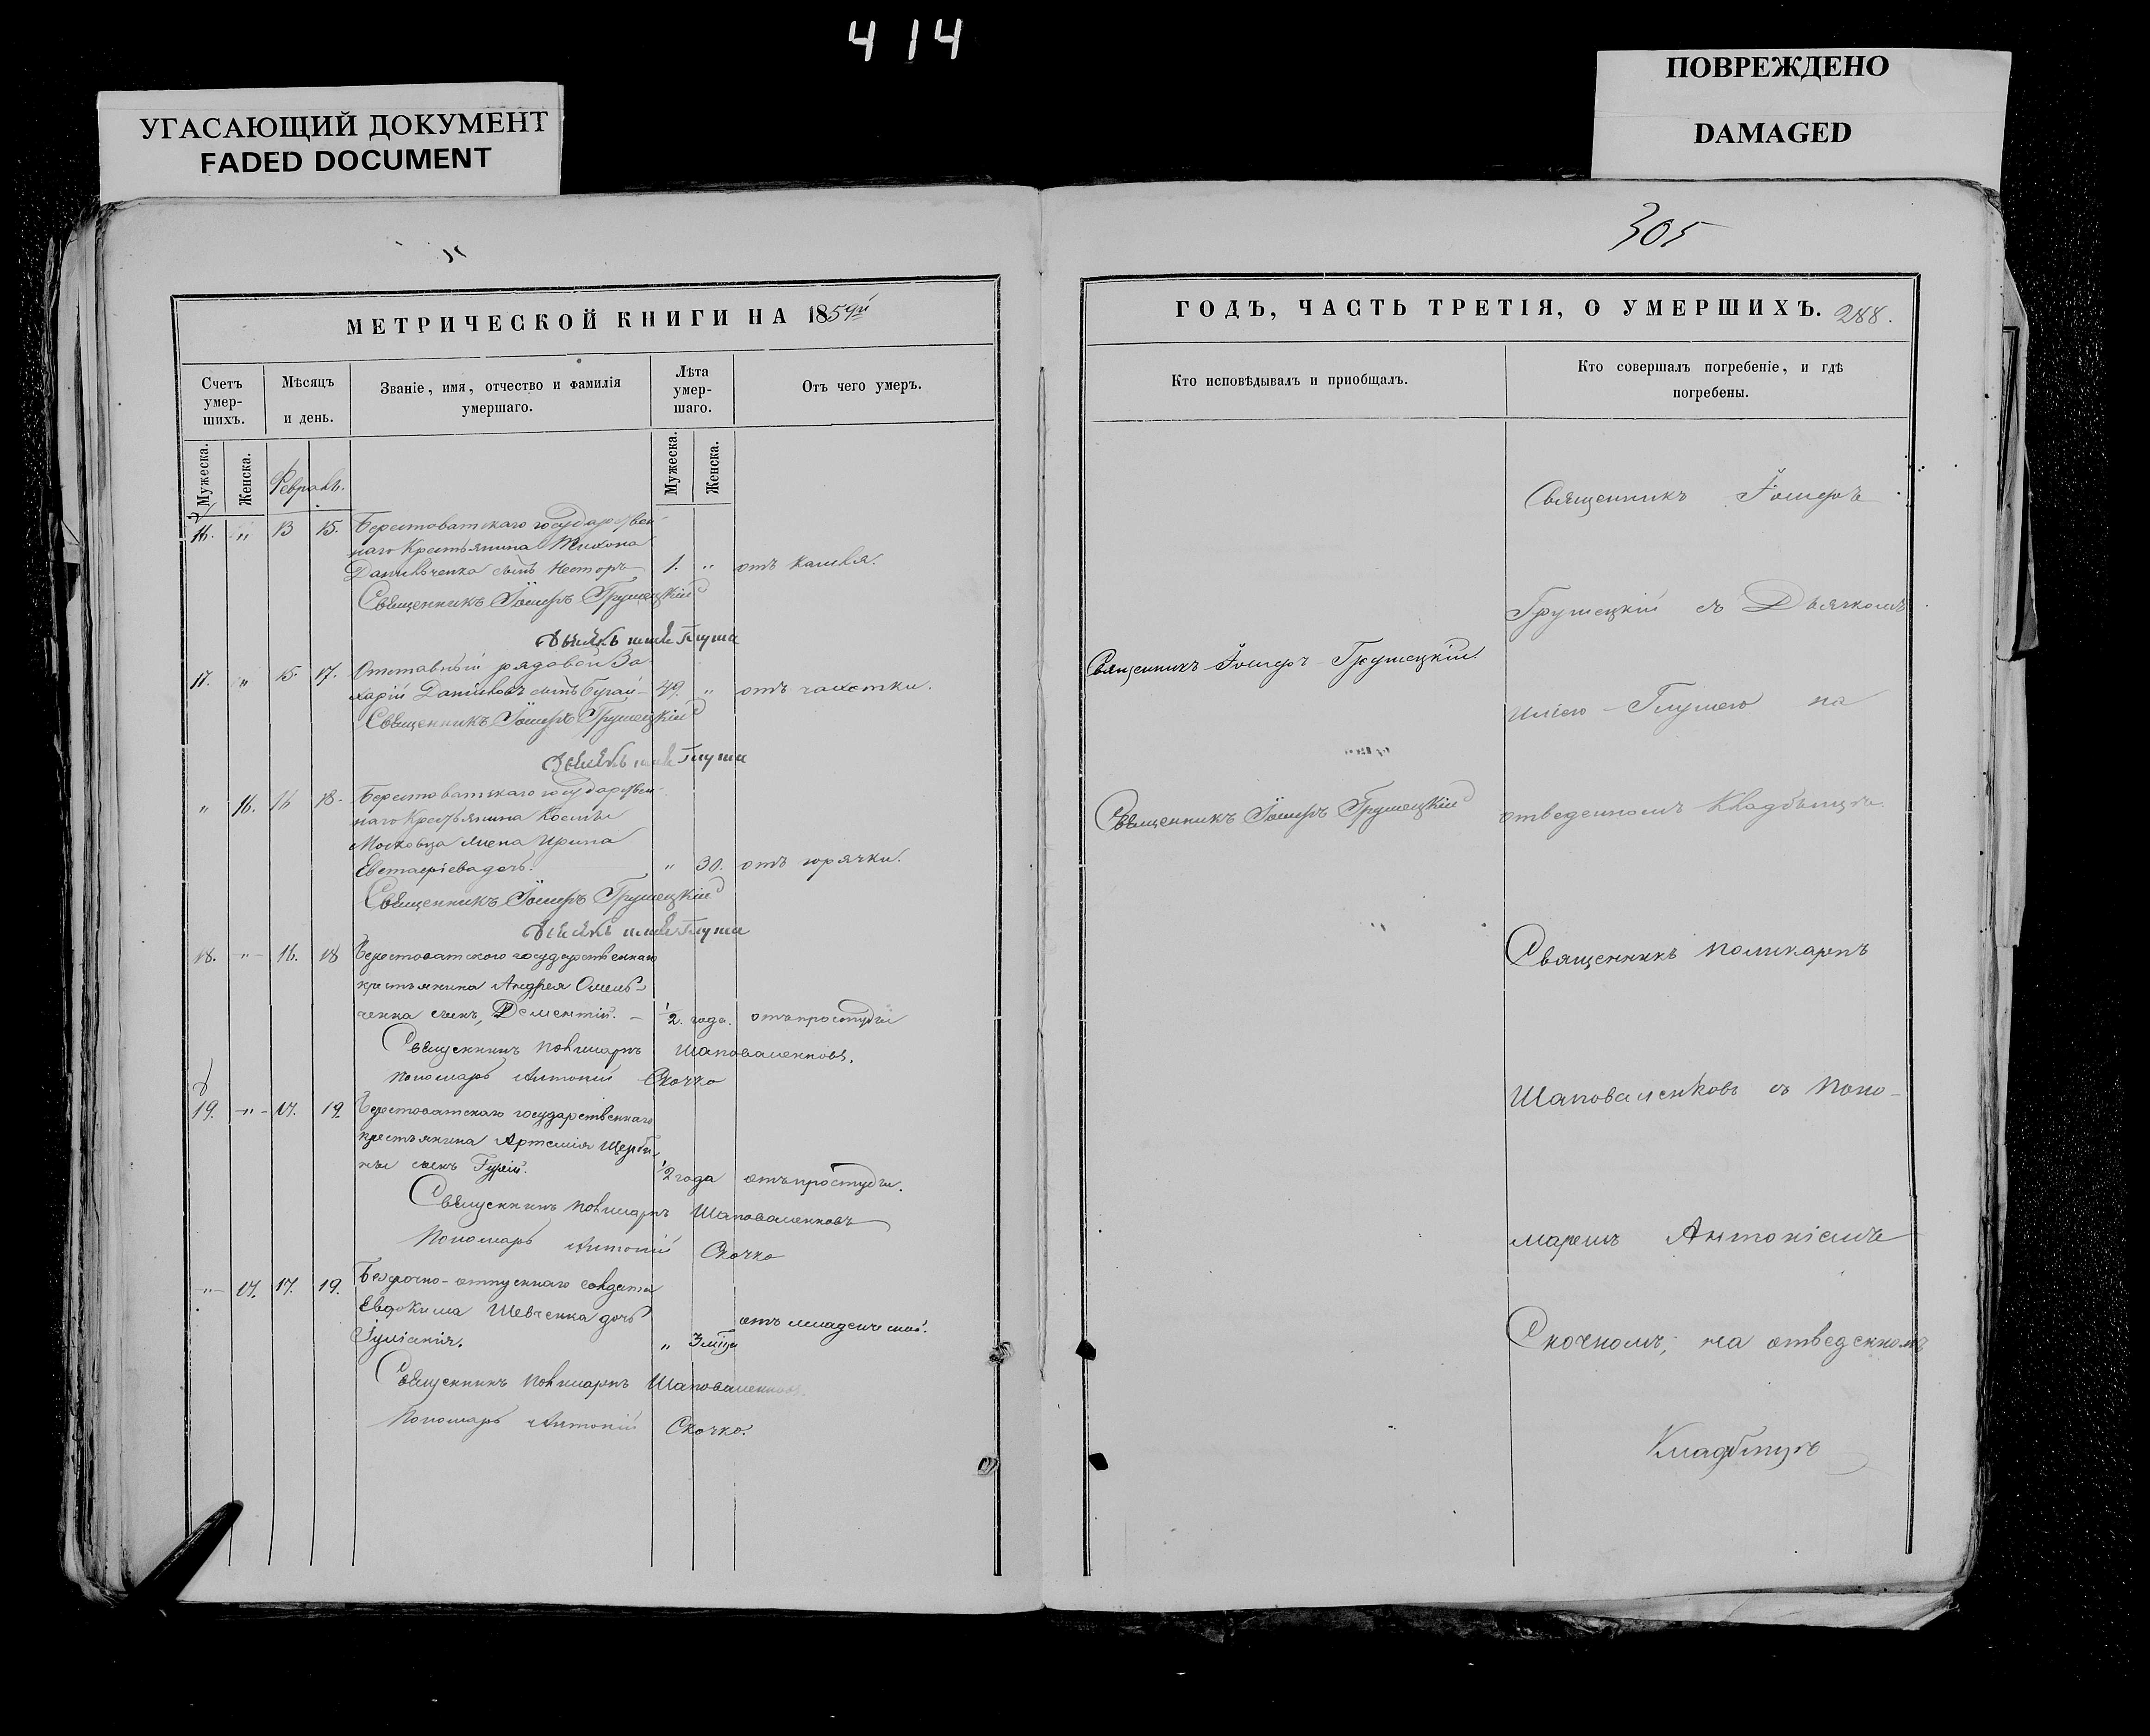 414
УГАСАЮЩИЙ ДОКУМЕНТ
FADED DOCUMENT
ПОВРЕЖДЕНО
DAMAGED
305
МЕТРИЧЕСКОЙ КНИГИ НА 1859й
Счетъ умер-шихъ.
Мѣсяцъ и день.
Званіе, имя, отчество и фамилія умершаго.
Лѣта умер-шаго.
Отъ чего умеръ.
Мужеска.
Женска.
Февраль.
Мужеска.
Женска.
16. " 13 15. Берестоватскаго государствен-
наго Крестьянина Тихона
Данильченка сынъ Несторъ 1. " отъ кашля.
Священникъ Іосифъ Грушецкій
Дьячекъ Глуша
17. " 15. 17. Отставный рядовой За-
харій Даніиловъ сынъ Бугай 49. " отъ чахотки.
Священникъ Іосифъ Грушецкій
Дьячекъ Глуша
" 16. 16 18. Берестоватскаго государствен-
наго Крестьянина Космы
Московца жена Ирина
Евстафіева дочь. " 30. отъ горячки.
Священникъ Іосифъ Грушецкій
Дьячекъ Глуша
18. " 16. 18 Берестоватского государственнаго
крестьянина Андрея Омель-
ченка сынъ, Дементій. 1/2. года. отъ простуды
Священникъ Поликарпъ Шаповаленковъ.
Пономарь Антоній Скочко
19. " 17. 19. Берестоватскаго государственнаго
крестьянина Артемія Щерби-
ны сынъ Гурій. 1/2 года отъ простуды.
Священникъ Поликарпъ Шаповаленковъ
Пономарь Антоній Скочко
" 17. 17. 19. Безсрочно-отпускнаго солдата
Евдокима Шевченка дочь
Іуліанія. " 3 мѣца отъ младенческой.
Священникъ Поликарпъ Шаповаленковъ.
Пономарь Антоній Скочко.
ГОДЪ, ЧАСТЬ ТРЕТІЯ, О УМЕРШИХЪ. 288.
Кто исповѣдывалъ и приобщалъ.
Кто совершалъ погребеніе, и гдѣ
погребены.
Священникъ Іосифъ Грушецкій.
Священникъ Іосифъ Грушецкій
Священникъ Іосифъ
Грушецкій съ Дьячкомъ
Иліею Глушею на
отведенномъ Кладбищѣ.
Священникъ Поликарпъ
Шаповаленковъ съ Поно-
маремъ Антоніемъ
Скочкомъ, на отведенномъ
Кладбищѣ